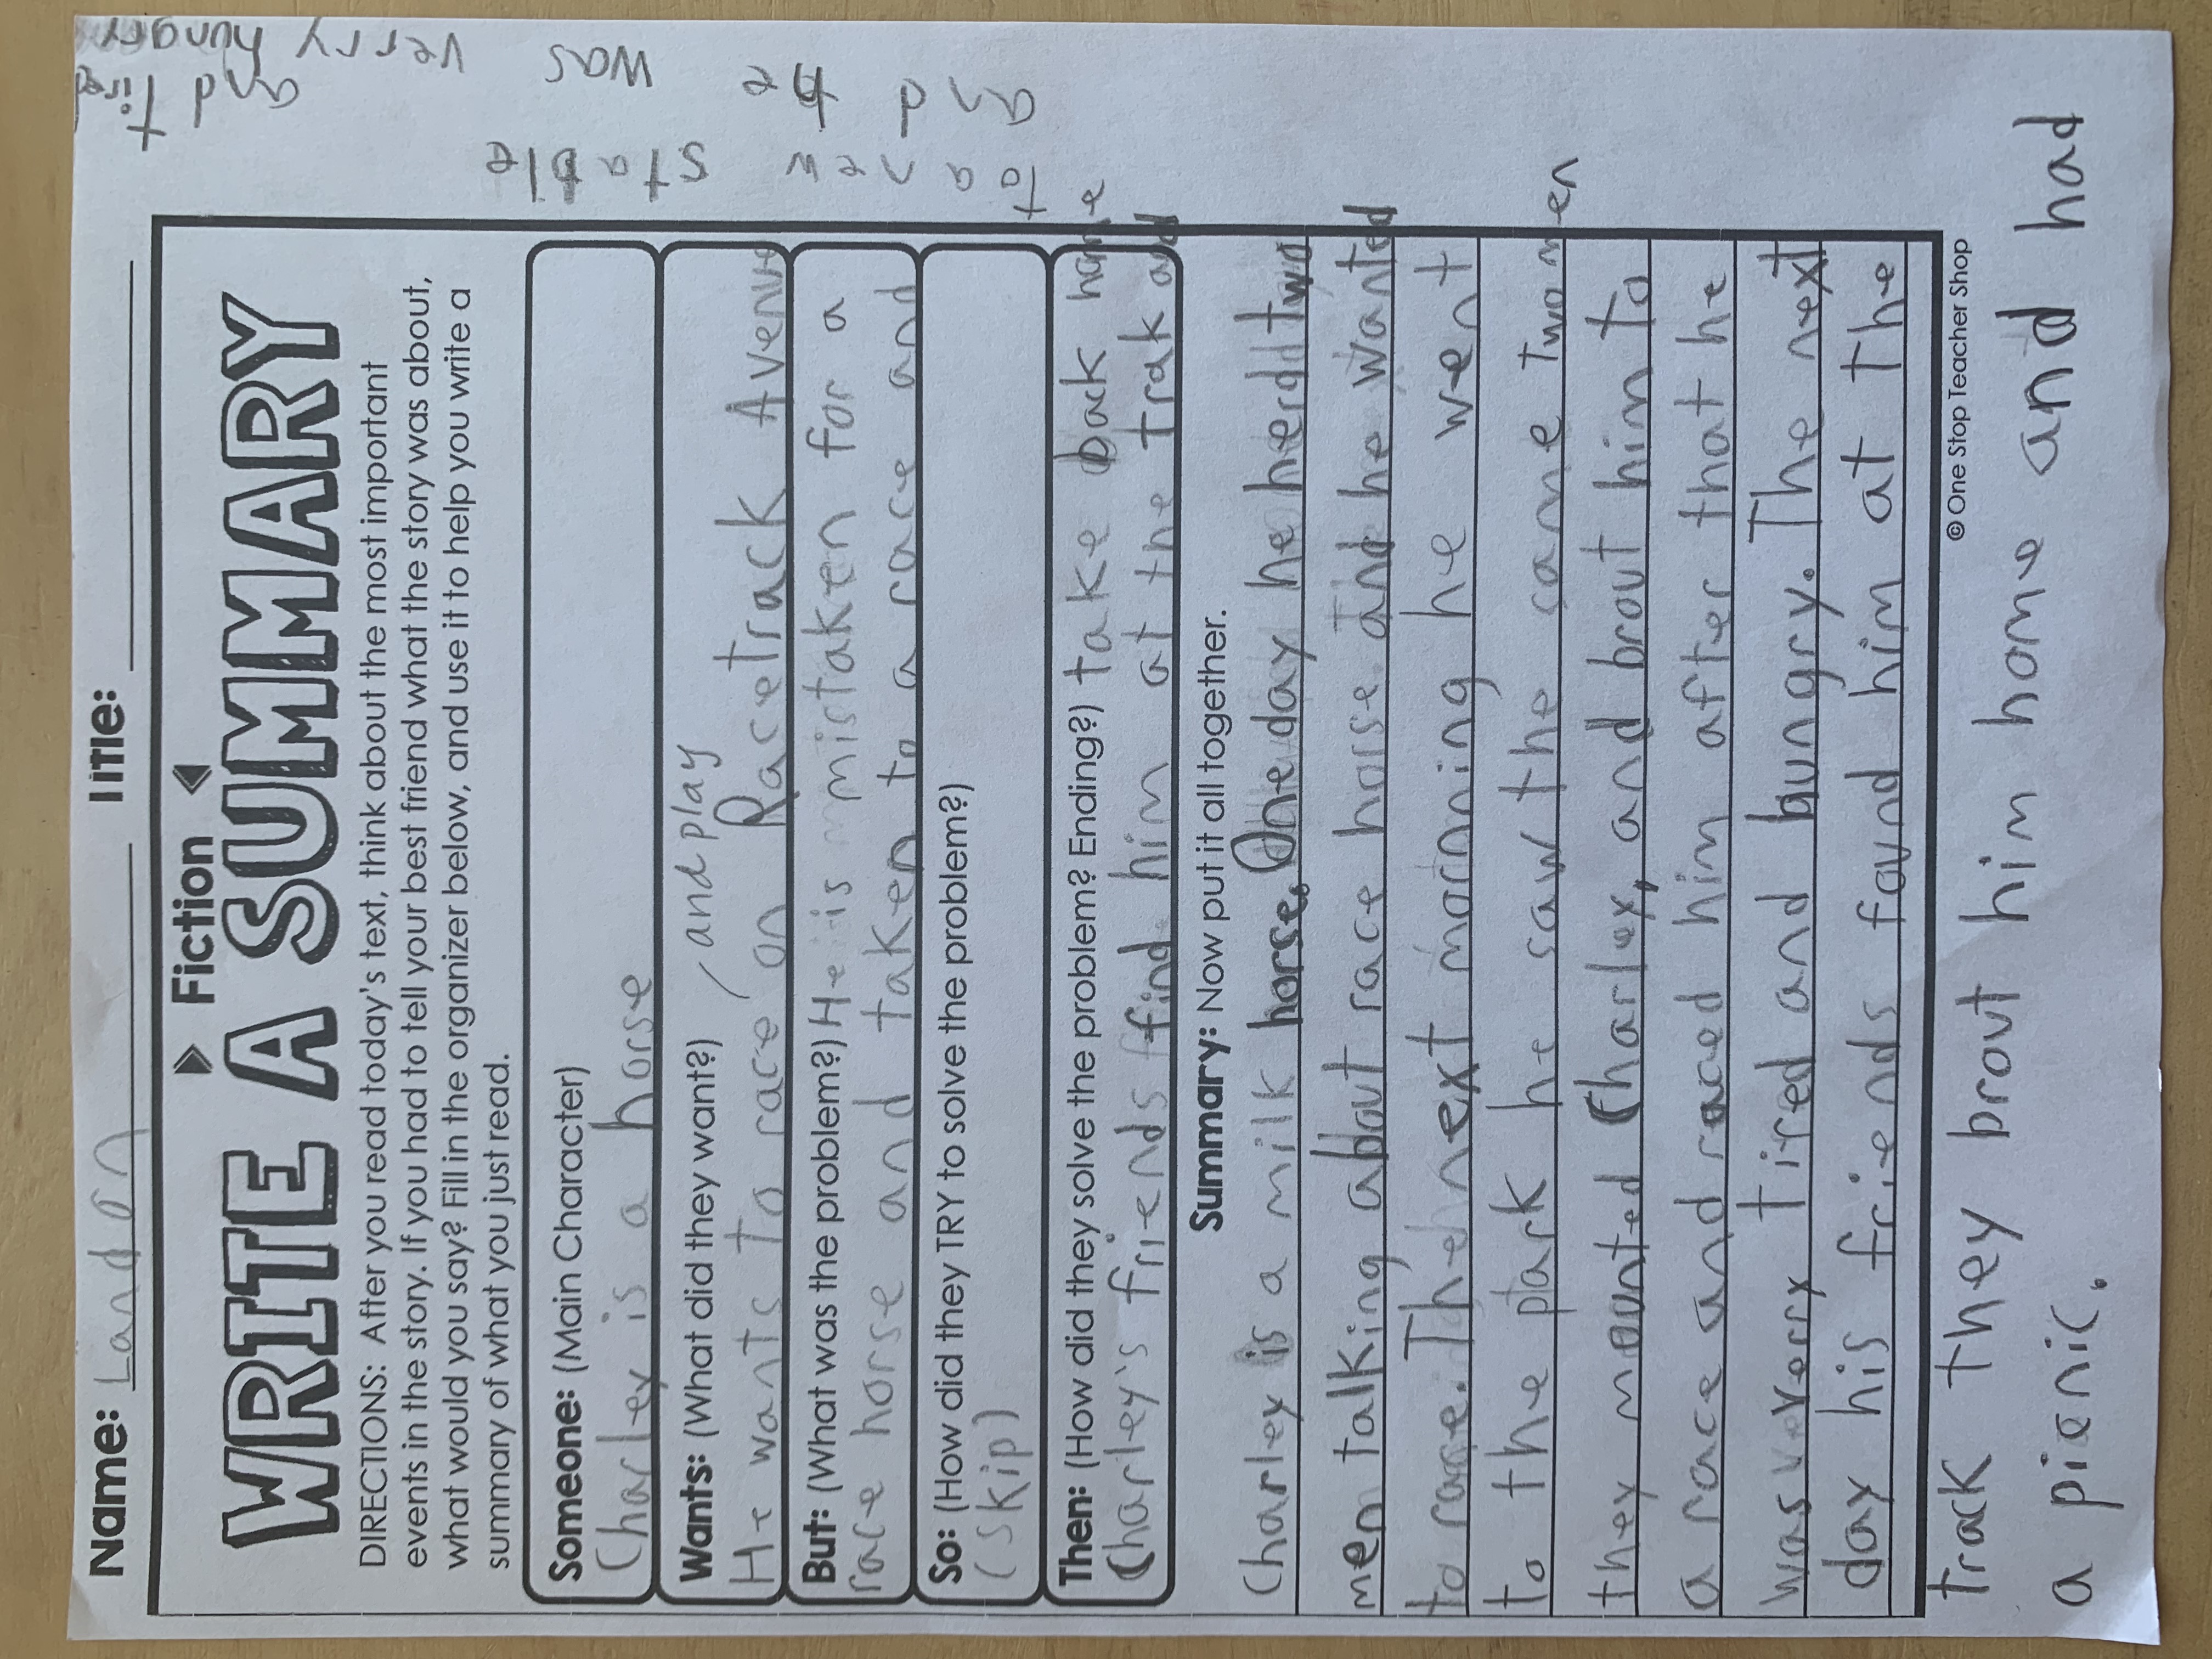 Name: Landon Title:
Fiction
WRITE A SUMMARY
DIRECTIONS: After you read today's text, think about the most important
events in the story. If you had to tell your best friend what the story was about,
what would you say? Fill in the organizer below, and use it to help you write a
summary of what you just read.
Someone: (Main Character)
Charley is a horse
Wants: (What did they want?) / and play
He wants to race on Racetrack Avenue
But: (What was the problem?) He is mistaken for a
race horse and taken to a race and
So: (How did they TRY to solve the problem?)
(skip)
Then: (How did they solve the problem? Ending?) take back home
Charley's friends find him at the trak and
to a new stable
and he was verry hungry
and tired
Summary: Now put it all together.
Charley is a milk horse. One day he herd two
men talking about race horse and he wanted
to race. The next morning he went
to the park he saw the same two men
they mounted Charley, and brout him to
a race and raced him after that he
was verry tired and hungry. The next
day his friends found him at the
© One Stop Teacher Shop
track they brout him home and had
a picnic.